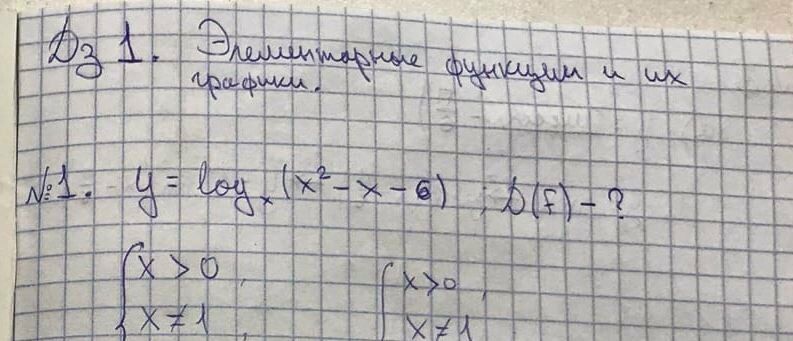 Дз 1. Элементарные функции и их
графики.
№1. y = log_x (x² - x - 6) ; D(f) - ?
{ x > 0 , { x > 0 ,
x ≠ 1 , x ≠ 1